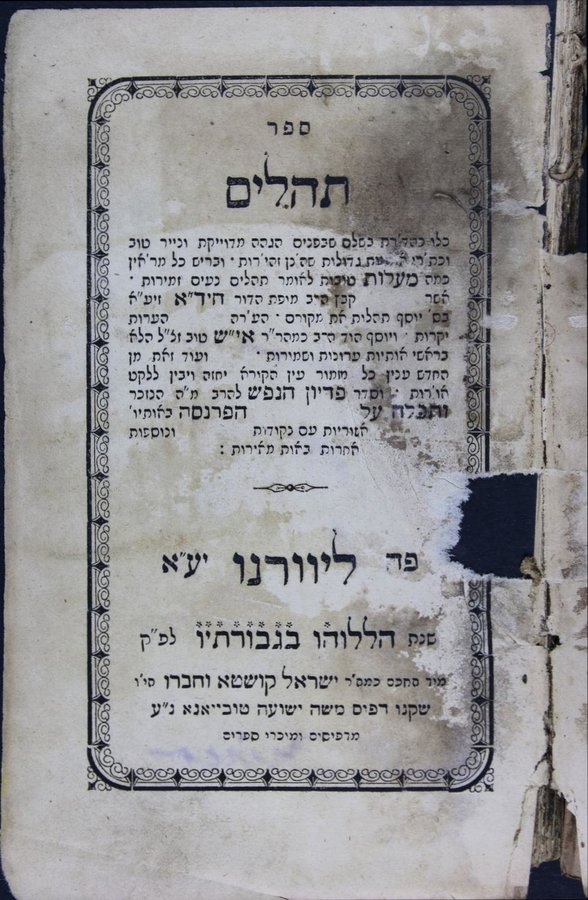 ספר
תהלים
כלו בשלם שבפנים הגהה מדוייקת ונייר טוב
גדולות וכריש כל
כמה מערות טובות לאומר תהלים נעים זמירות ·
אשר קבץ הרב מופת הדור חיד"א זיע"א
בס' יוסף תהלות את מקורם · הערות
יקרות · ויוסף הוד הרב כמהר"ר אי"ש טוב זלל"ל הלא
בראשי אותיות ערוכות ושמורות · ועוד זאת מן
החדש ענין כל מזמור עין הקורא יחזה ויבין ללקט
אורות · וסדר פדיון הנפש להרב מ"ה הנזכר
ותפלה על הפרנסה באותיו'
אשוריות עם נקודות ונוספות
אחרות באות מאירות :
פה ליוורנו יע"א
שנת הללוהו בגבורתיו לפ"ק
ישראל קושטא וחברו סי"ו
שקנו דפוס משה ישועה טובייאנא נ"ע
מדפיסים ומוכרי ספרים